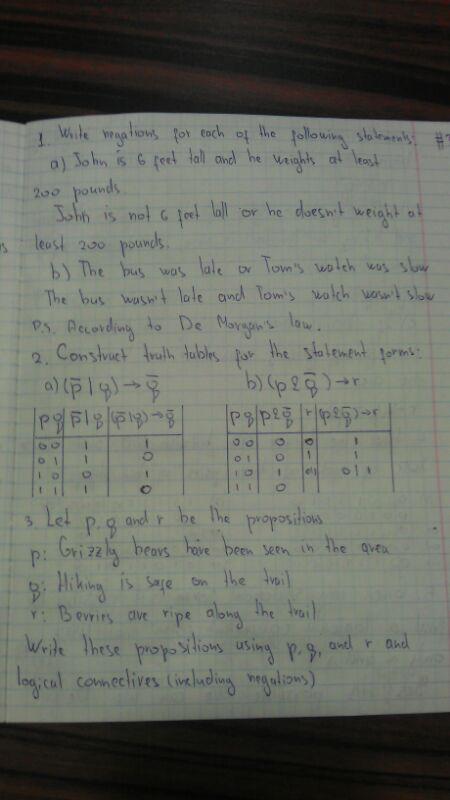 1. Write negations for each of the following statements: #
a) John is 6 feet tall and he weights at least
200 pounds.
John is not 6 feet tall or he doesn't weight at
least 200 pounds.
b) The bus was late or Tom's watch was slow
The bus wasn't late and Tom's watch wasn't slow
P.S. According to De Morgan's law.
2. Construct truth tables for the statement forms:
a) (p̅ | q) → q̅ b) (p & q̅) → r
p q p̅ | q (p̅ | q) → q̅ p q p & q̅ r (p & q̅) → r
0 0 1 1 0 0 0 0 1
0 1 1 0 0 1 0 1 1
1 0 0 1 1 0 1 0|1 0 | 1
1 1 1 0 1 1 0
3. Let p, q and r be the propositions
p: Grizzly bears have been seen in the area
q: Hiking is safe on the trail
r: Berries are ripe along the trail
Write these propositions using p, q, and r and
logical connectives (including negations)